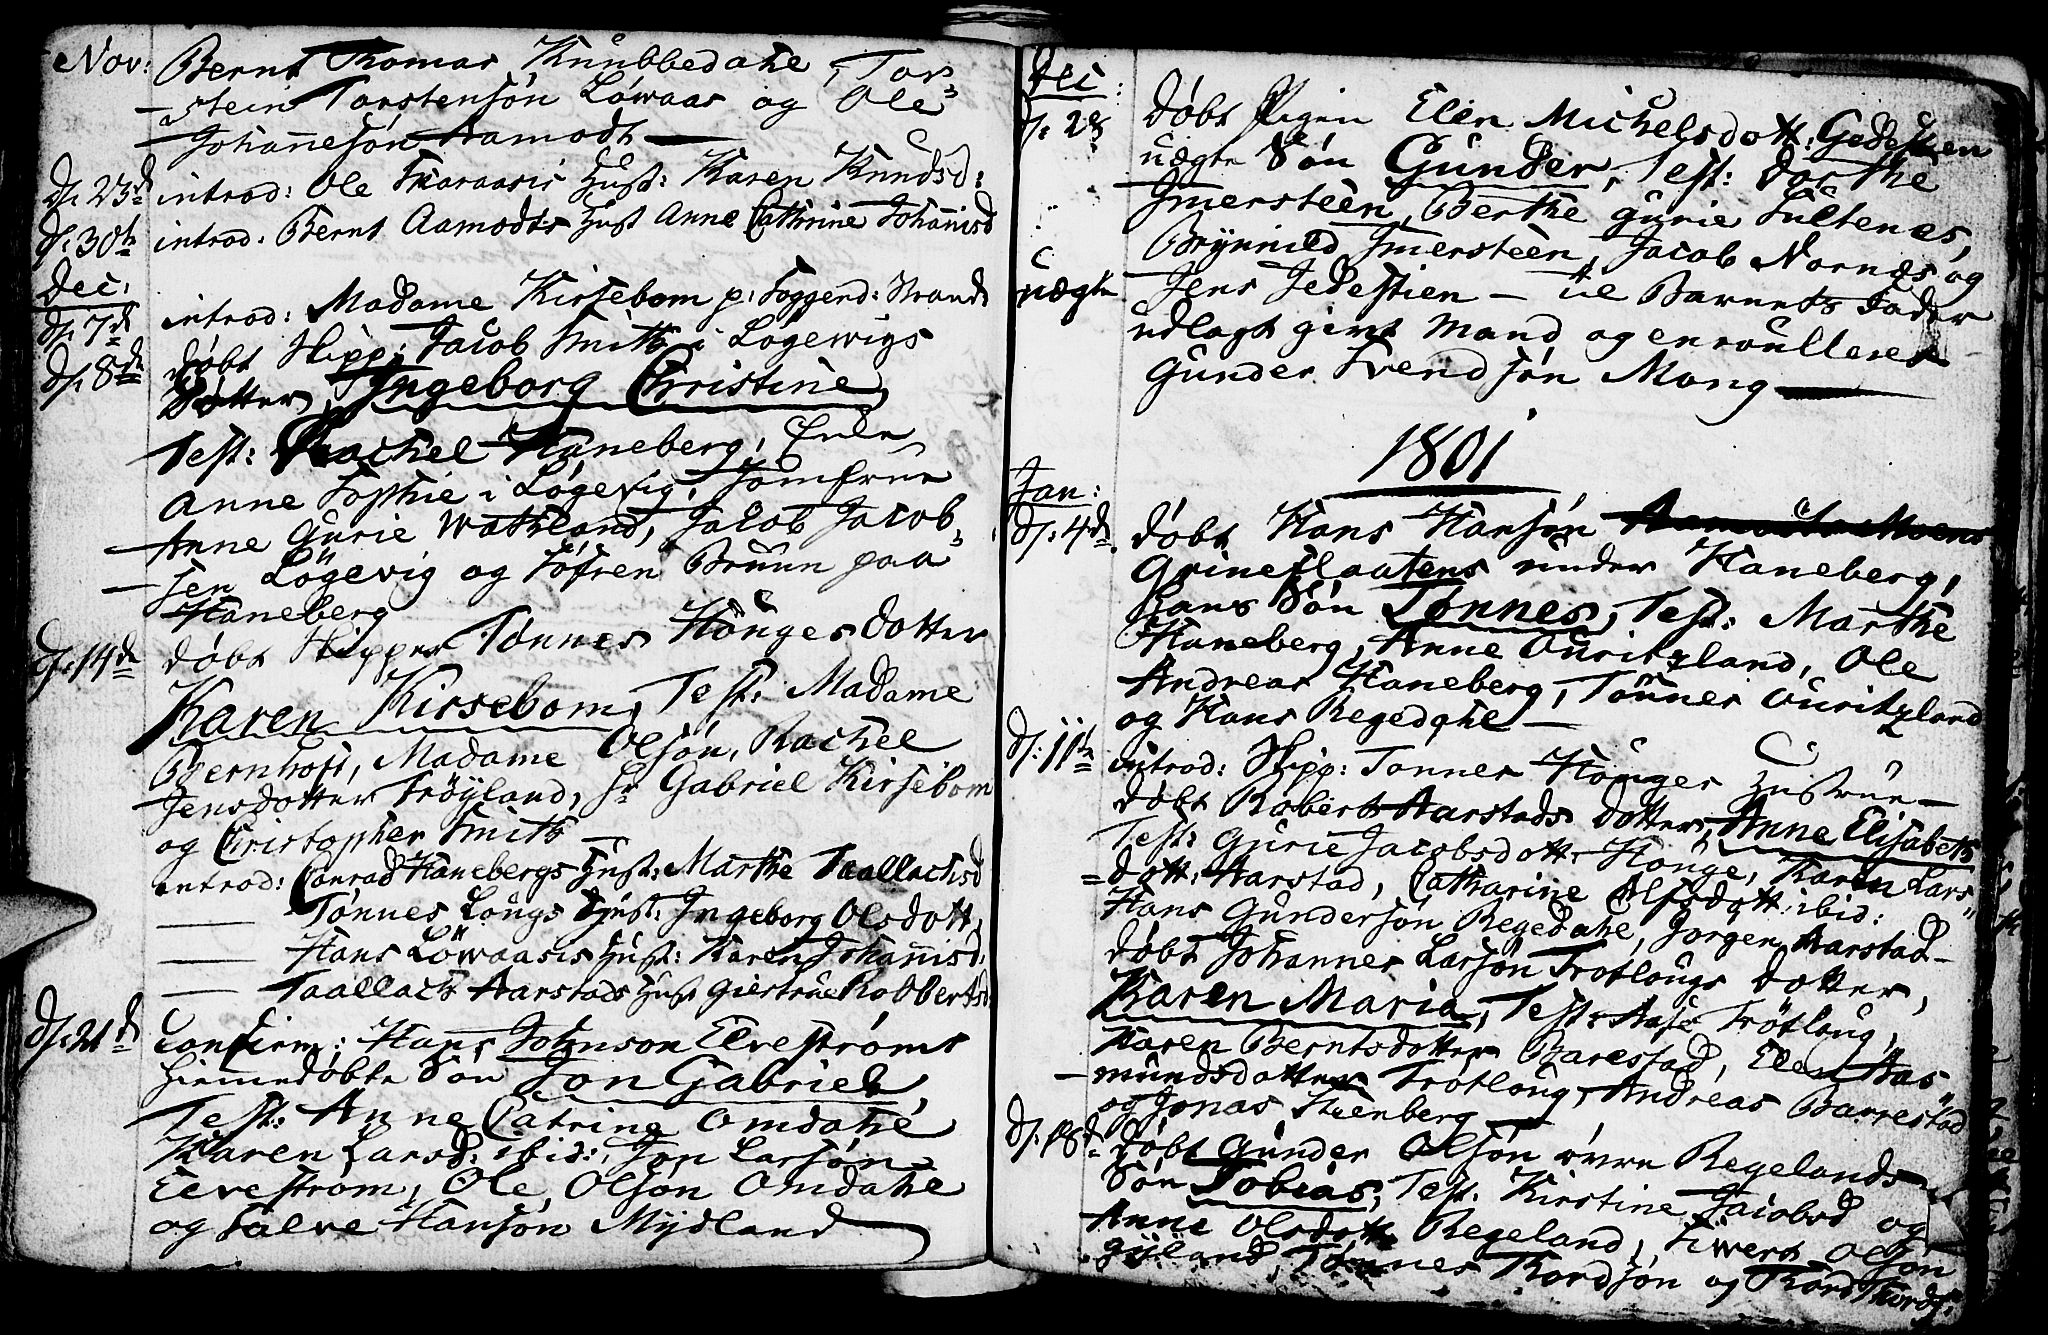 Nov: Bernt Thomas Knubbedahl, Tor-
stein Torstensøn Løwaas og Ole
Johannesøn Aamodt —
d: 23d introd: Ole Skaraasis Hust: Karen Knudsd:
d: 30te introd: Bernt Aamodts Hust Anne Cathrine Johanisd
Dec:
d: 7d introd: Madame Kirsebom p: Soggend: Strand
d: 8de døbt Skipp: Jacob Smith i Løgewigs
Dotter, Ingeborg Christine,
Test: Rachel Haneberg,
Anne Sophie i Løgevig, Jomfrue
Anne Gurie Wathland, Jacob Jacob-
sen Løgevig og Søfren Bruun paa
Haneberg
d: 14de døbt Skipper Tønnes Houges Dotter
Karen Kirsebom, Test: Madame
Bernhoft, Madame Olsøn, Rachel
Jensdotter Frøyland, Sr Gabriel Kirsebom
og Christopher Smith —
introd: Conrad Hanebergs Hust: Marthe Taallachsd
— Tønnes Lougs Hust: Ingeborg Olsdott,
— Hans Løwaasis Hust: Karen Johanisd:
— Taallach Aarstads Hust Giertrue Robbertsd
d: 21d Confirm: Hans Johnson Elvestrøms
hiemmedøbte Søn Jon Gabriel,
Test: Anne Catrine Omdahl
Karen Larsd: ibid:, Jon Larsøn
Elvestrøm, Ole Olsøn Omdahl
og Salve Hansøn Mydland —
Dec:
d: 28 døbt Pigen Elen Michelsdott: Gedestien
uægte Søn Gunder, Test: Dorthe
Imersteen, Berthe Gurie Sultenes,
Brynnild Imersteen, Jacob Nornes og
uægte Jens Jedestien — til Barnets Fader
udlagt givt Mand og enroulleret
Gunder Svendsøn Mong —
1801
Jan:
d: 4de døbt Hans Hansøn
Grineflaatens under Haneberg,
Hans Søn Tønnes, Test: Marthe
Haneberg, Anne Ouritzland, Ole
Andreas Haneberg, Tønnes Ouritzland
og Hans Regedahl —
d: 11te introd: Skipp: Tønnes Houges Hustrue —
døbt Robert Aarstads Dotter, Anne Elisabeth
Test: Gurie Jacobsdott: Houge, Karen Lars-
dott: Aarstad, Catharine Olfsdott: ibid:
Hans Gundersøn Regedahl, Jørgen Aarstad —
døbt Johannes Larsøn Trotlougs Dotter,
Karen Maria, Test: Aase Trøtloug,
Karen Berntsdotter Barestad, Elen Aas-
mundsdotter Trotloug, Andreas Barrestad
og Jonas Steenberg —
d: 18d døbt Gunder Olsøn øvre Regelands
Søn Tobias, Test: Kirstine Jacobsd og
Anne Olsdott Regeland, Siwert Olsøn
Tønnes Thordsøn og Thord Thords: